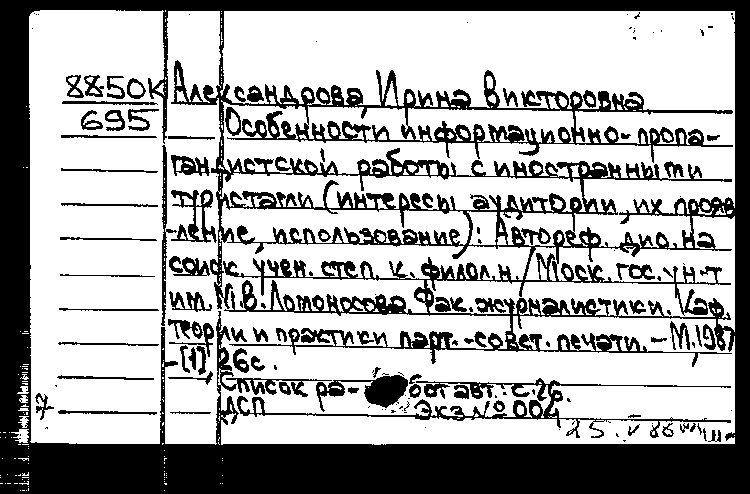 8850К Александрова, Ирина Викторовна
695 Особенности информационно-пропа-
гандистской работы с иностранными
туристами (интересы аудитории, их прояв
-ление, использование): Автореф. дис. на
соиск. учен. степ. к. филол. н. / Моск. гос. ун-т
им. М.В. Ломоносова. Фак. журналистики. Каф.
теории и практики парт.-совет. печати. – М, 1987
– [1], 26с.
Список ра- бот авт.: с. 26.
ДСП Экз № 004
25. V 86